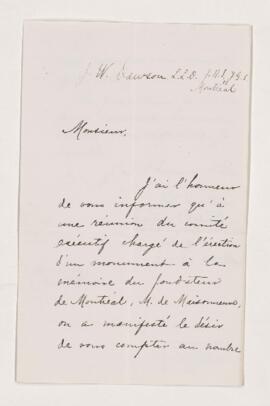 J. W. Dawson LL.D. F.R.S. F.G.S
Montréal
Monsieur,
J'ai l'honneur
de vous informer qu'à
une réunion du comité
exécutif chargé de l'érection
d'un monument à la
mémoire du fondateur
de Montréal, M. de Maisonneuve,
on a manifesté le désir
de vous compter au nombre